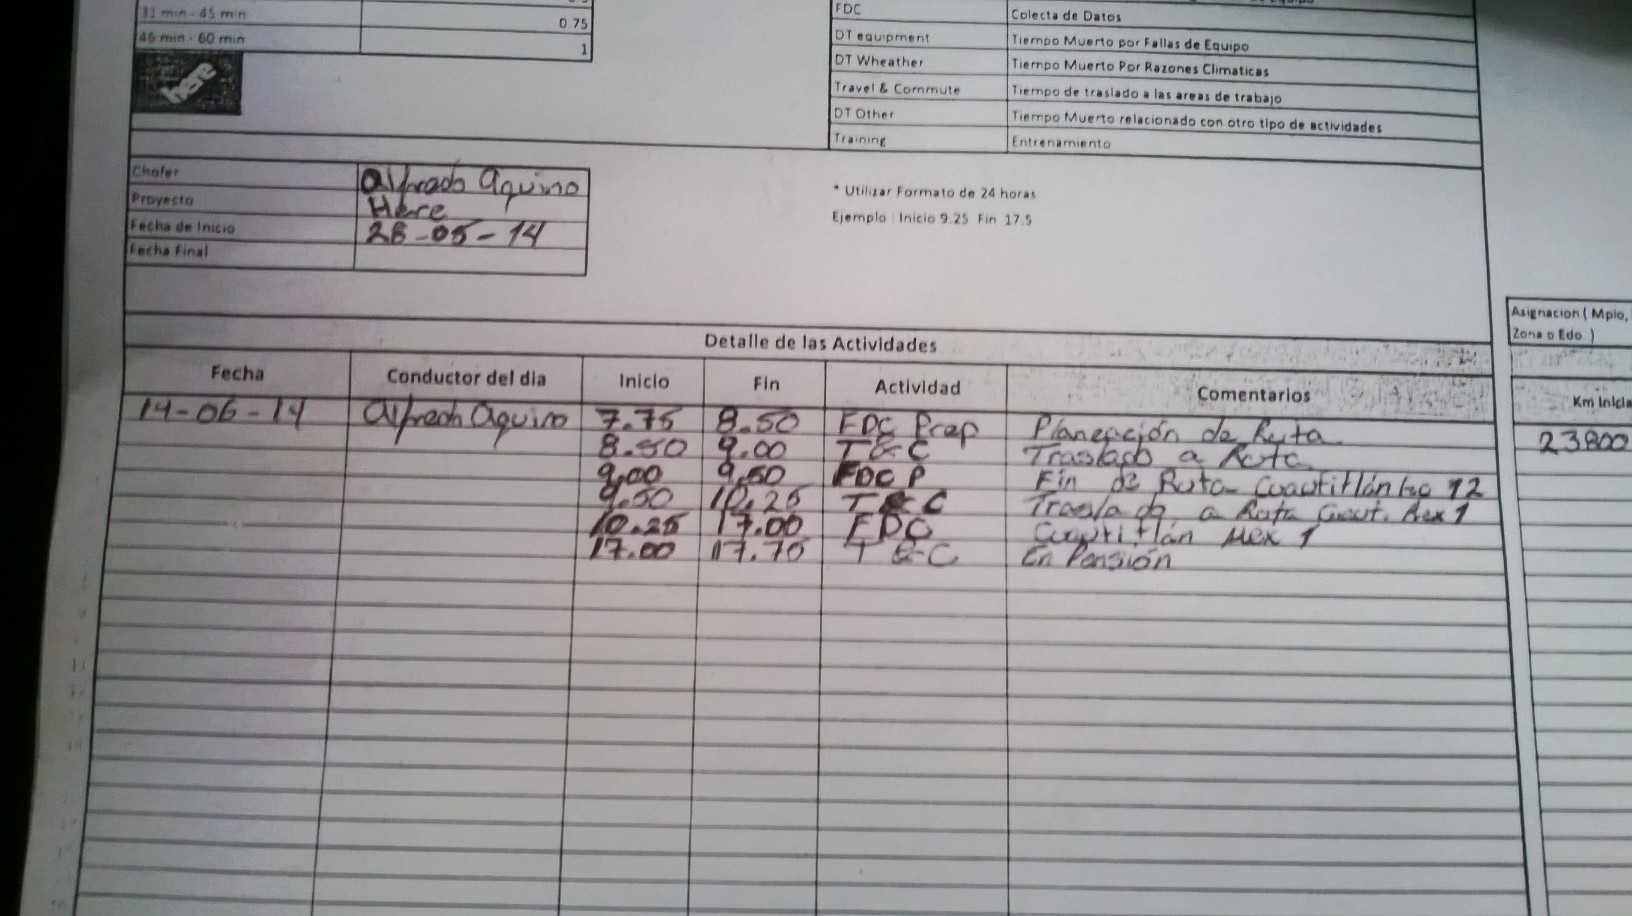 31 min - 45 min 0.75
46 min - 60 min 1
here
FDC Colecta de Datos
DT equipment Tiempo Muerto por Fallas de Equipo
DT Wheather Tiempo Muerto Por Razones Climaticas
Travel & Commute Tiempo de traslado a las areas de trabajo
DT Other Tiempo Muerto relacionado con otro tipo de actividades
Training Entrenamiento
Chofer Alfredo Aquino
Proyecto Here
Fecha de Inicio 28-05-14
Fecha Final
* Utilizar Formato de 24 horas
Ejemplo : Inicio 9.25 Fin 17.5
Asignacion ( Mpio,
Zona o Edo )
Detalle de las Actividades
Fecha Conductor del dia Inicio Fin Actividad Comentarios Km Inicia
14-06-14 Alfredo Aquino 7.75 8.50 FDC Prep Planeación de Ruta 23800
8.50 9.00 T & C Traslado a Ruta
9.00 9.50 FDC P Fin de Ruta Cuautitlán 12
9.50 10.25 T & C Traslado a Ruta Cuaut. Mex 1
10.25 17.00 FDC Cuautitlán Mex 1
17.00 17.75 T & C En Pensión